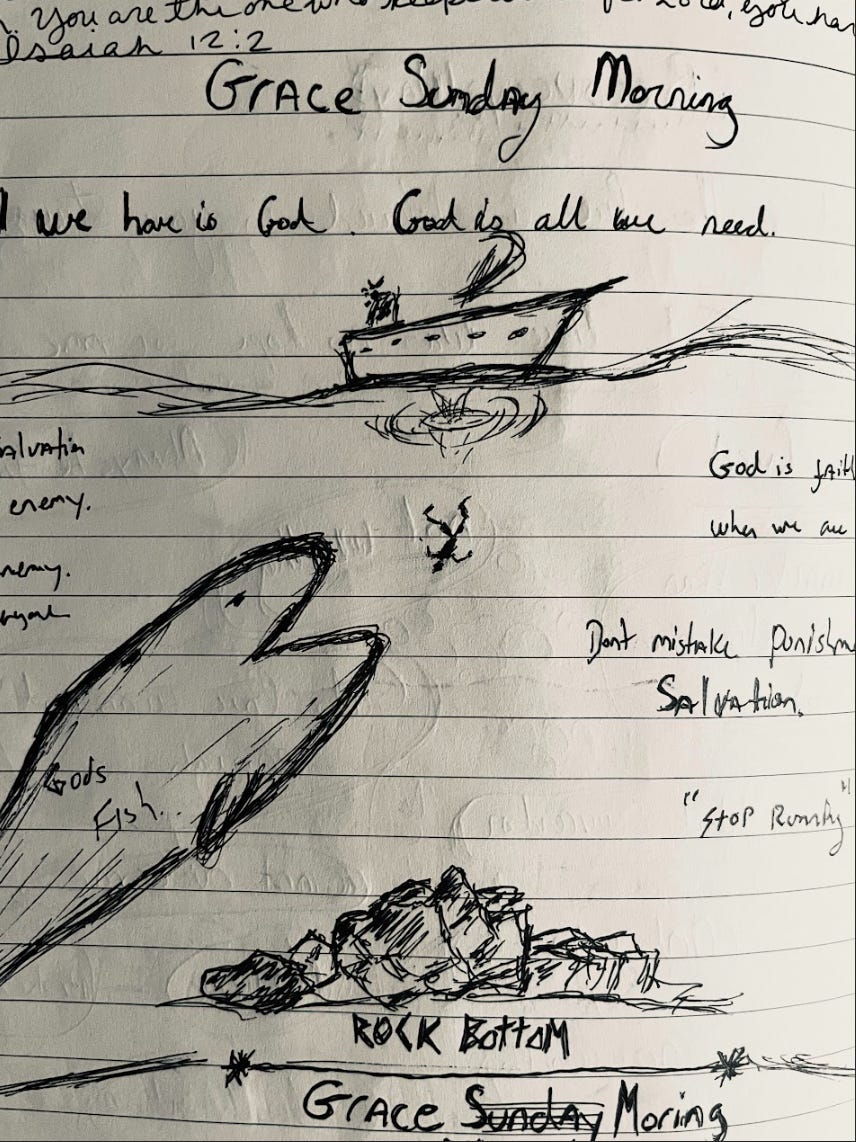 You are the one who
you hav
Isaiah 12:2
Grace Sunday Morning
we have is God. God is all we need.
Salvatin
enemy.
God is faith
when we are
Dont mistake punishm
Salvation.
Gods
Fish...
"Stop Running"
ROCK Bottom
Grace Sunday Moring